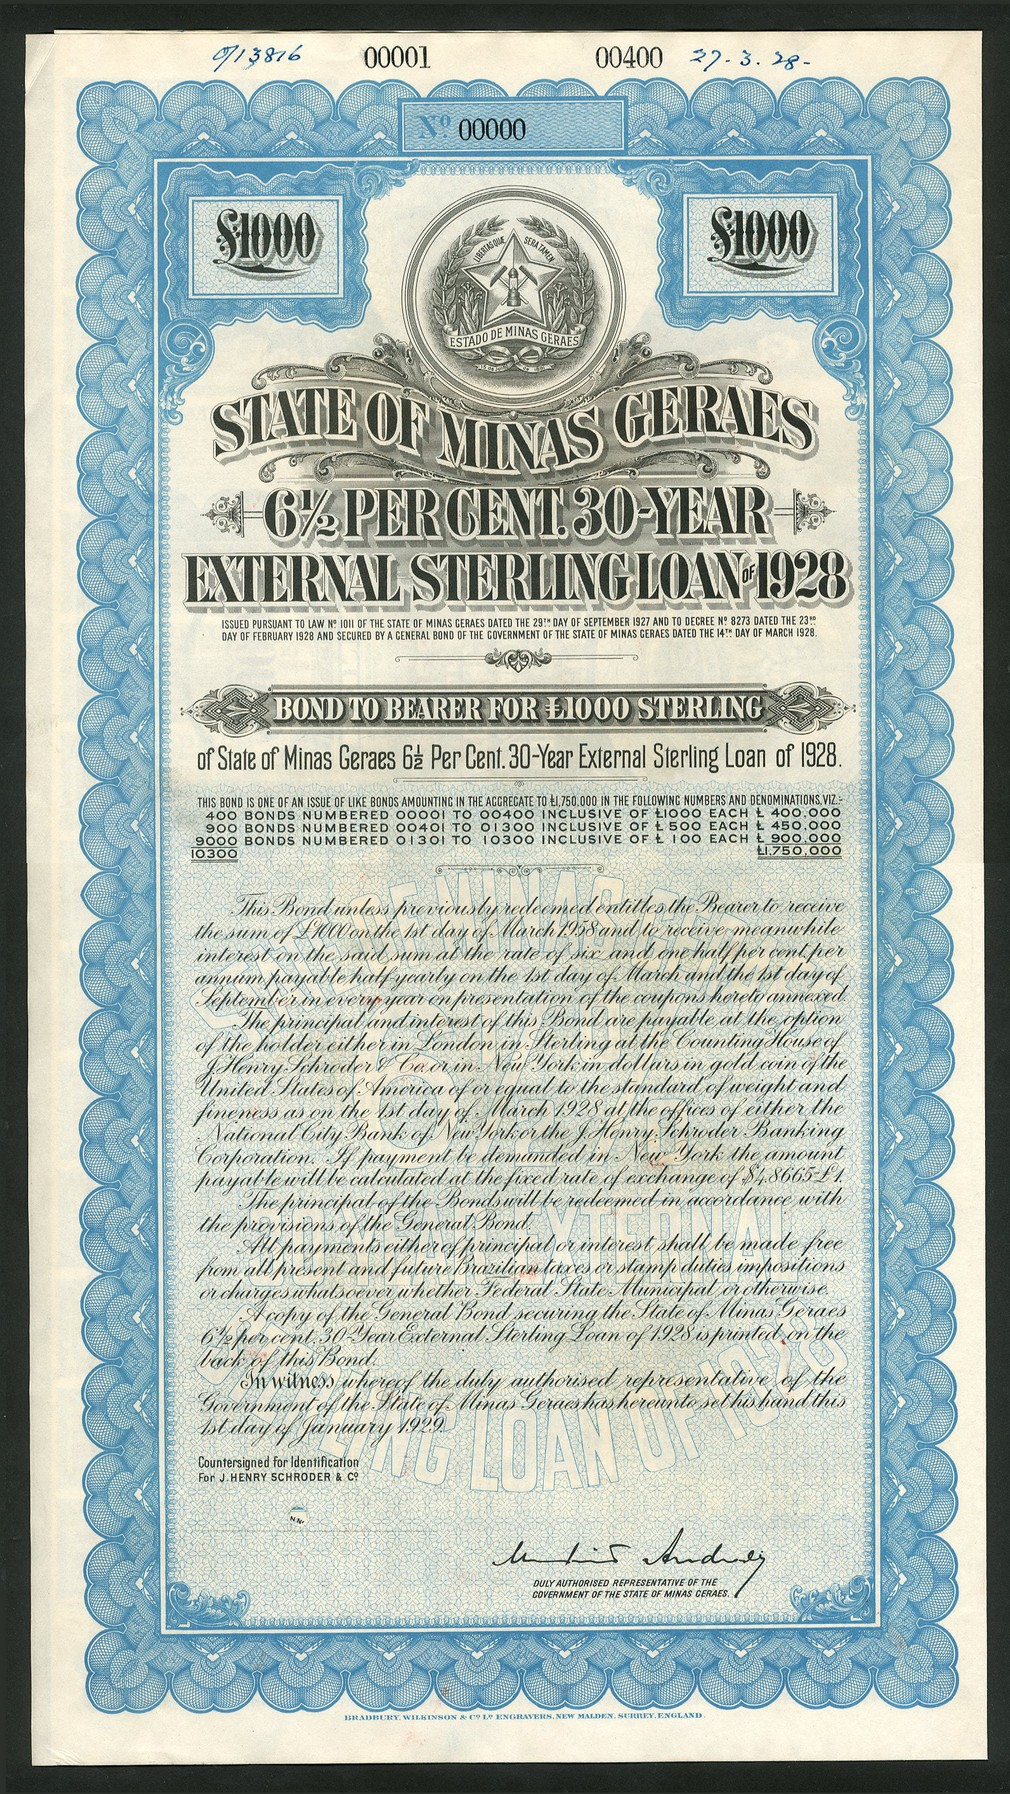 O/13816 00001 00400 27-3.28-
Nº 00000
£1000 £1000
LIBERTAS QUE SERA TAMEN
ESTADO DE MINAS GERAES
STATE OF MINAS GERAES
6½ PER CENT. 30-YEAR
EXTERNAL STERLING LOAN OF 1928
ISSUED PURSUANT TO LAW Nº 1011 OF THE STATE OF MINAS GERAES DATED THE 29TH DAY OF SEPTEMBER 1927 AND TO DECREE Nº 8273 DATED THE 23RD
DAY OF FEBRUARY 1928 AND SECURED BY A GENERAL BOND OF THE GOVERNMENT OF THE STATE OF MINAS GERAES DATED THE 14TH DAY OF MARCH 1928.
BOND TO BEARER FOR £1000 STERLING
of State of Minas Geraes 6½ Per Cent. 30-Year External Sterling Loan of 1928.
THIS BOND IS ONE OF AN ISSUE OF LIKE BONDS AMOUNTING IN THE AGGREGATE TO £1,750,000 IN THE FOLLOWING NUMBERS AND DENOMINATIONS, VIZ:-
400 BONDS NUMBERED 00001 TO 00400 INCLUSIVE OF £1000 EACH £ 400.000
900 BONDS NUMBERED 00401 TO 01300 INCLUSIVE OF £ 500 EACH £ 450.000
9000 BONDS NUMBERED 01301 TO 10300 INCLUSIVE OF £ 100 EACH £ 900.000
10300 £1.750,000
This Bond unless previously redeemed entitles the Bearer to receive
the sum of £1000 on the 1st day of March 1958 and to receive meanwhile
interest on the said sum at the rate of six and one half per cent per
annum payable half-yearly on the 1st day of March and the 1st day of
September in every year on presentation of the coupons hereto annexed.
The principal and interest of this Bond are payable at the option
of the holder either in London in Sterling at the Counting House of
J. Henry Schroder & Co. or in New York in dollars in gold coin of the
United States of America of or equal to the standard of weight and
fineness as on the 1st day of March 1928 at the offices of either the
National City Bank of New York or the J. Henry Schroder Banking
Corporation. If payment be demanded in New York the amount
payable will be calculated at the fixed rate of exchange of $4.8665=£1.
The principal of the Bonds will be redeemed in accordance with
the provisions of the General Bond.
All payments either of principal or interest shall be made free
from all present and future Brazilian taxes or stamp duties impositions
or charges whatsoever whether Federal State Municipal or otherwise.
A copy of the General Bond securing the State of Minas Geraes
6½ per cent. 30-Year External Sterling Loan of 1928 is printed on the
back of this Bond.
In witness whereof the duly authorised representative of the
Government of the State of Minas Geraes has hereunto set his hand this
1st day of January 1929.
Countersigned for Identification
For J. HENRY SCHRODER & Cº
DULY AUTHORISED REPRESENTATIVE OF THE
GOVERNMENT OF THE STATE OF MINAS GERAES.
BRADBURY, WILKINSON & Cº Lᴰ ENGRAVERS, NEW MALDEN, SURREY, ENGLAND.